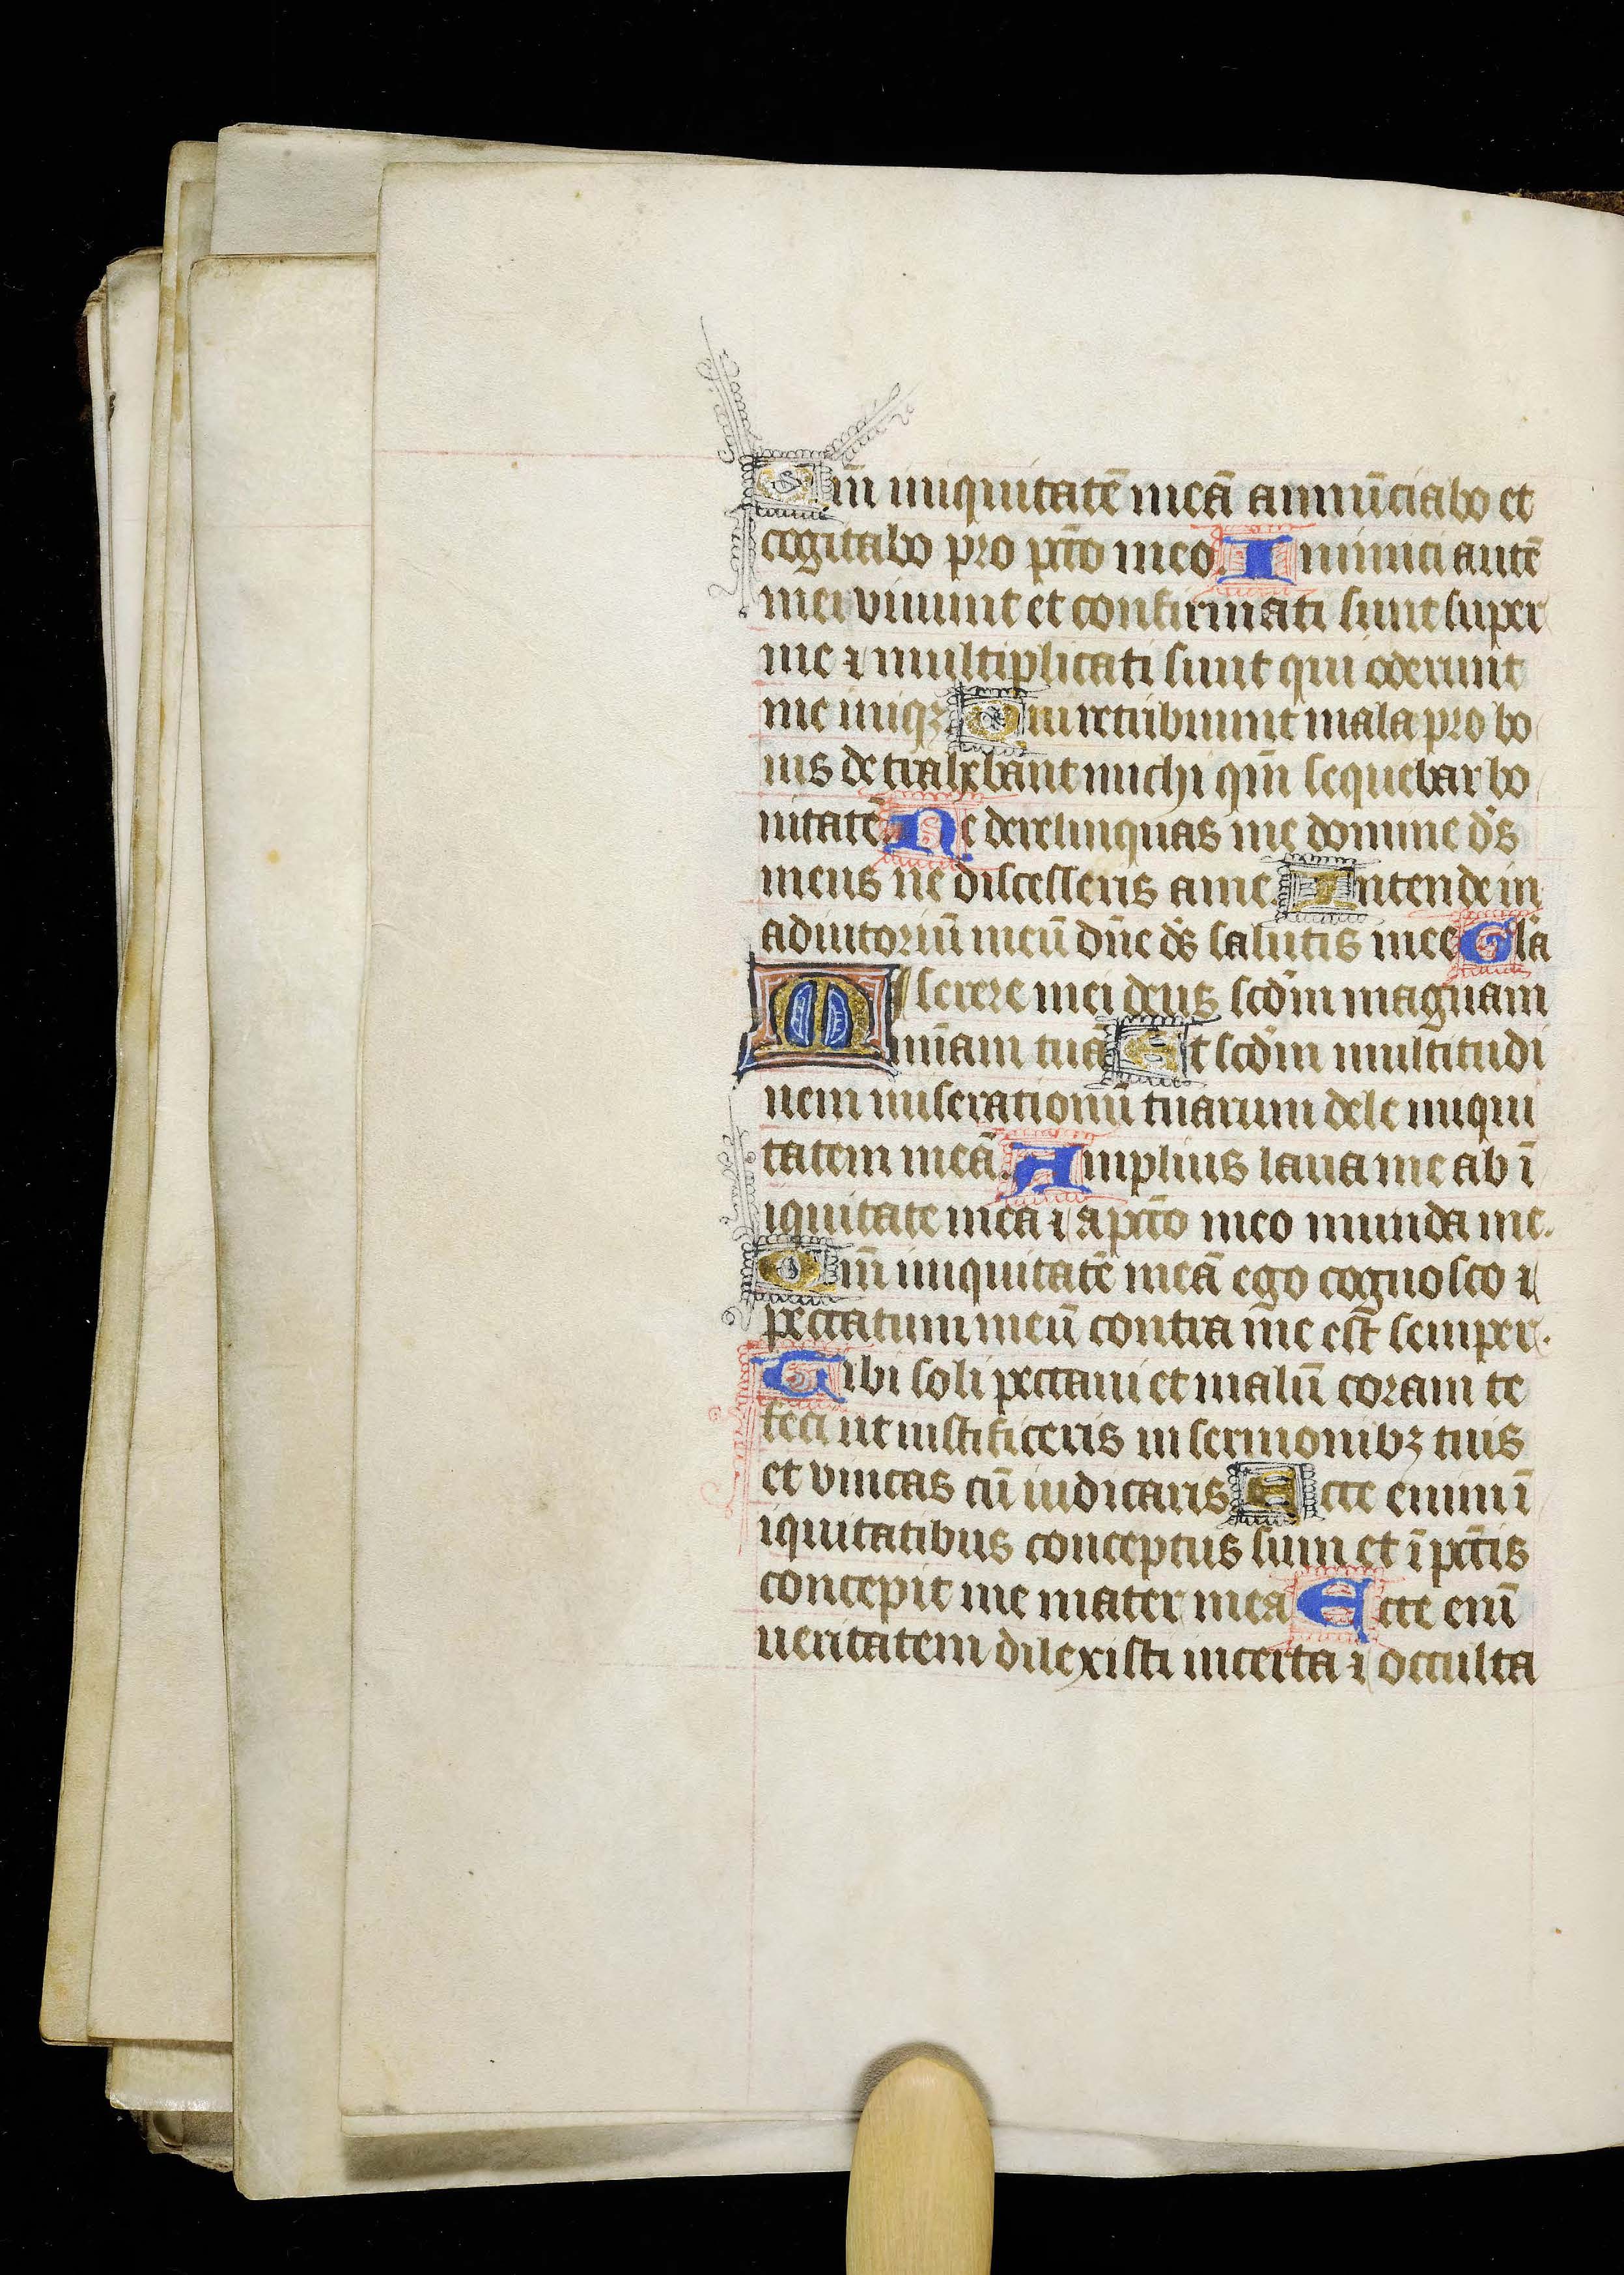 Qm̄ iniquitatē meā annūciabo et
cogitabo pro pctō meo. Inimici autē
mei viuunt et confirmati sunt super
me ⁊ multiplicati sunt qui oderunt
me iniqꝫ Qui retribuunt mala pro bo
nis detrahebant michi qm̄ sequebar bo
nitatē. Ne derelinquas me domine ds̄
meus ne discesseris a me. Intende in
adiutoriū meū dn̄e ds̄ salutis mee Gla
Miserere mei deus scd̄m magnam
mīam tuā Et scd̄m multitudi
nem miserationū tuarum dele iniqui
tatem meā. Amplius laua me ab ī
iquitate mea ⁊ a pctō meo munda me.
Qm̄ iniquitatē meā ego cognosco ⁊
peccatum meū contra me est semper.
Tibi soli peccaui et malū coram te
feci ut iustificeris in sermonibꝫ tuis
et vincas cū iudicaris Ecce enim ī
iquitatibus conceptus sum et ī pctīs
concepit me mater mea Ecce enī
ueritatem dilexisti incerta ⁊ occulta